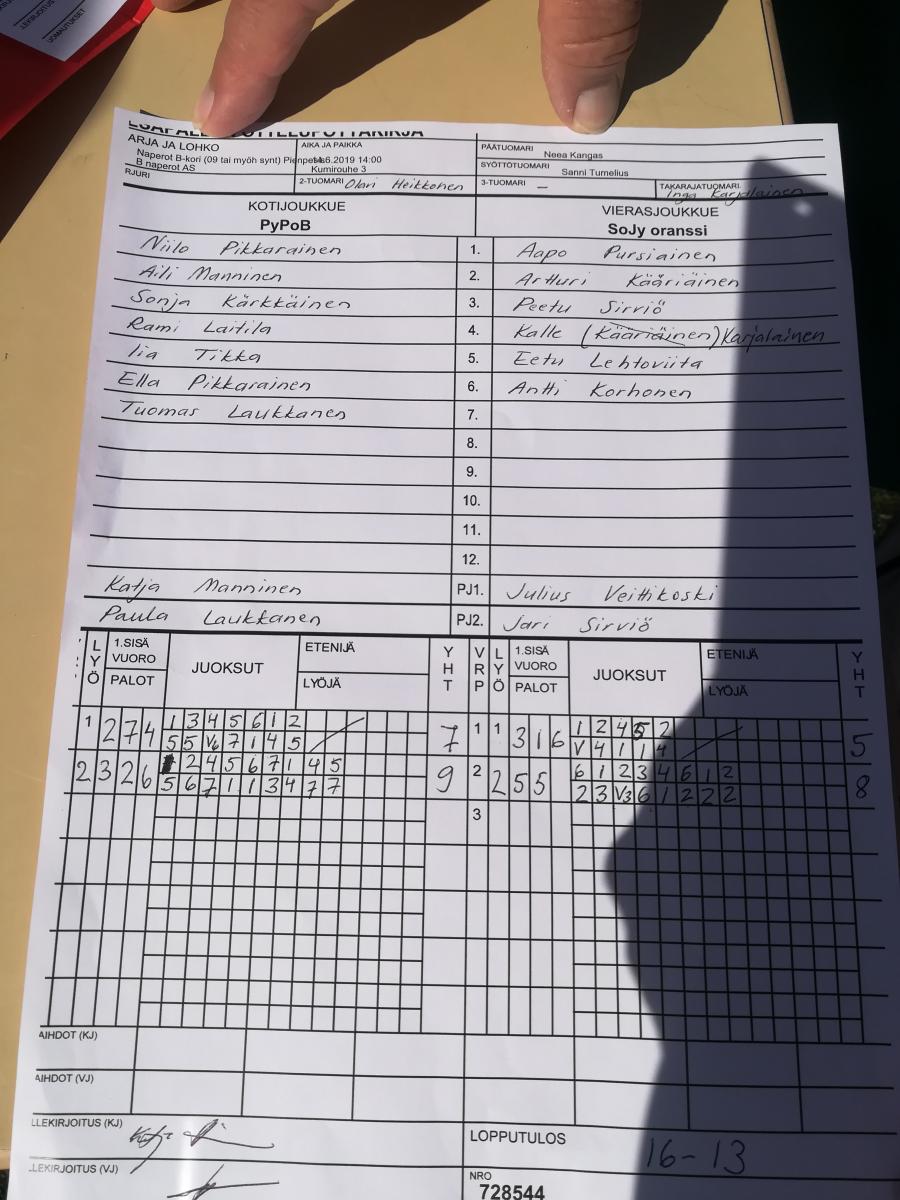 ARJA JA LOHKO AIKA JA PAIKKA PÄÄTUOMARI Neea Kangas
Naperot B-kori (09 tai myöh synt) 14.6.2019 14:00
B naperot AS Kumirouhe 3 SYÖTTÖTUOMARI Sanni Tumelius
RJURI 2-TUOMARI Olari Heikkonen 3-TUOMARI – TAKARAJATUOMARI Inga Karjalainen
KOTIJOUKKUE VIERASJOUKKUE
PyPoB SoJy oranssi
Niilo Pikkarainen 1. Aapo Pursiainen
Aili Manninen 2. Artturi Kääriäinen
Sonja Kärkkäinen 3. Peetu Sirviö
Rami Laitila 4. Kalle (Kääriäinen) Karjalainen
Iia Tikka 5. Eetu Lehtoviita
Ella Pikkarainen 6. Antti Korhonen
Tuomas Laukkanen 7.
8.
9.
10.
11.
12.
Katja Manninen PJ1. Julius Veittikoski
Paula Laukkanen PJ2. Jari Sirviö
LYÖ 1.SISÄ VUORO PALOT JUOKSUT ETENIJÄ LYÖJÄ YHT VRP LYÖ 1.SISÄ VUORO PALOT JUOKSUT ETENIJÄ LYÖJÄ YHT
1 2 7 4 1 3 4 5 6 1 2 7 1 1 3 1 6 1 2 4 5 2 5
5 5 V6 7 1 4 5 V 4 1 1 4
2 3 2 6 2 4 5 6 7 1 4 5 9 2 2 5 5 6 1 2 3 4 6 1 2 8
5 6 7 1 1 3 4 7 7 2 3 V3 6 1 2 2 2
3
AIHDOT (KJ)
AIHDOT (VJ)
LLEKIRJOITUS (KJ) LOPPUTULOS 16-13
LEKIRJOITUS (VJ) NRO
728544